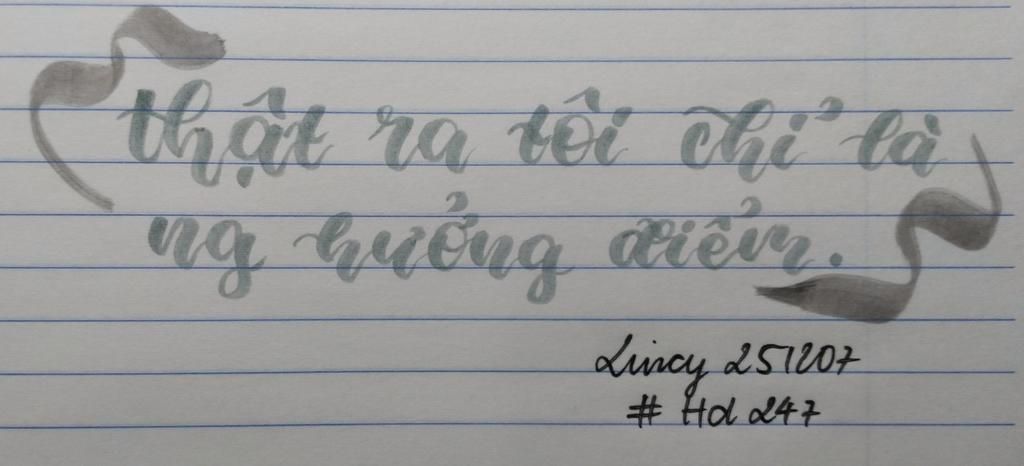 thật ra tôi chỉ là
ng hưởng xiểm.
Lincy 251207
# Hd 247